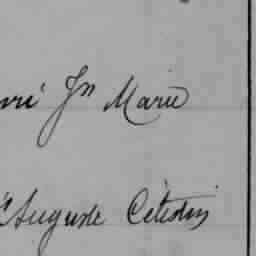 Jn Marie
Auguste Célestin